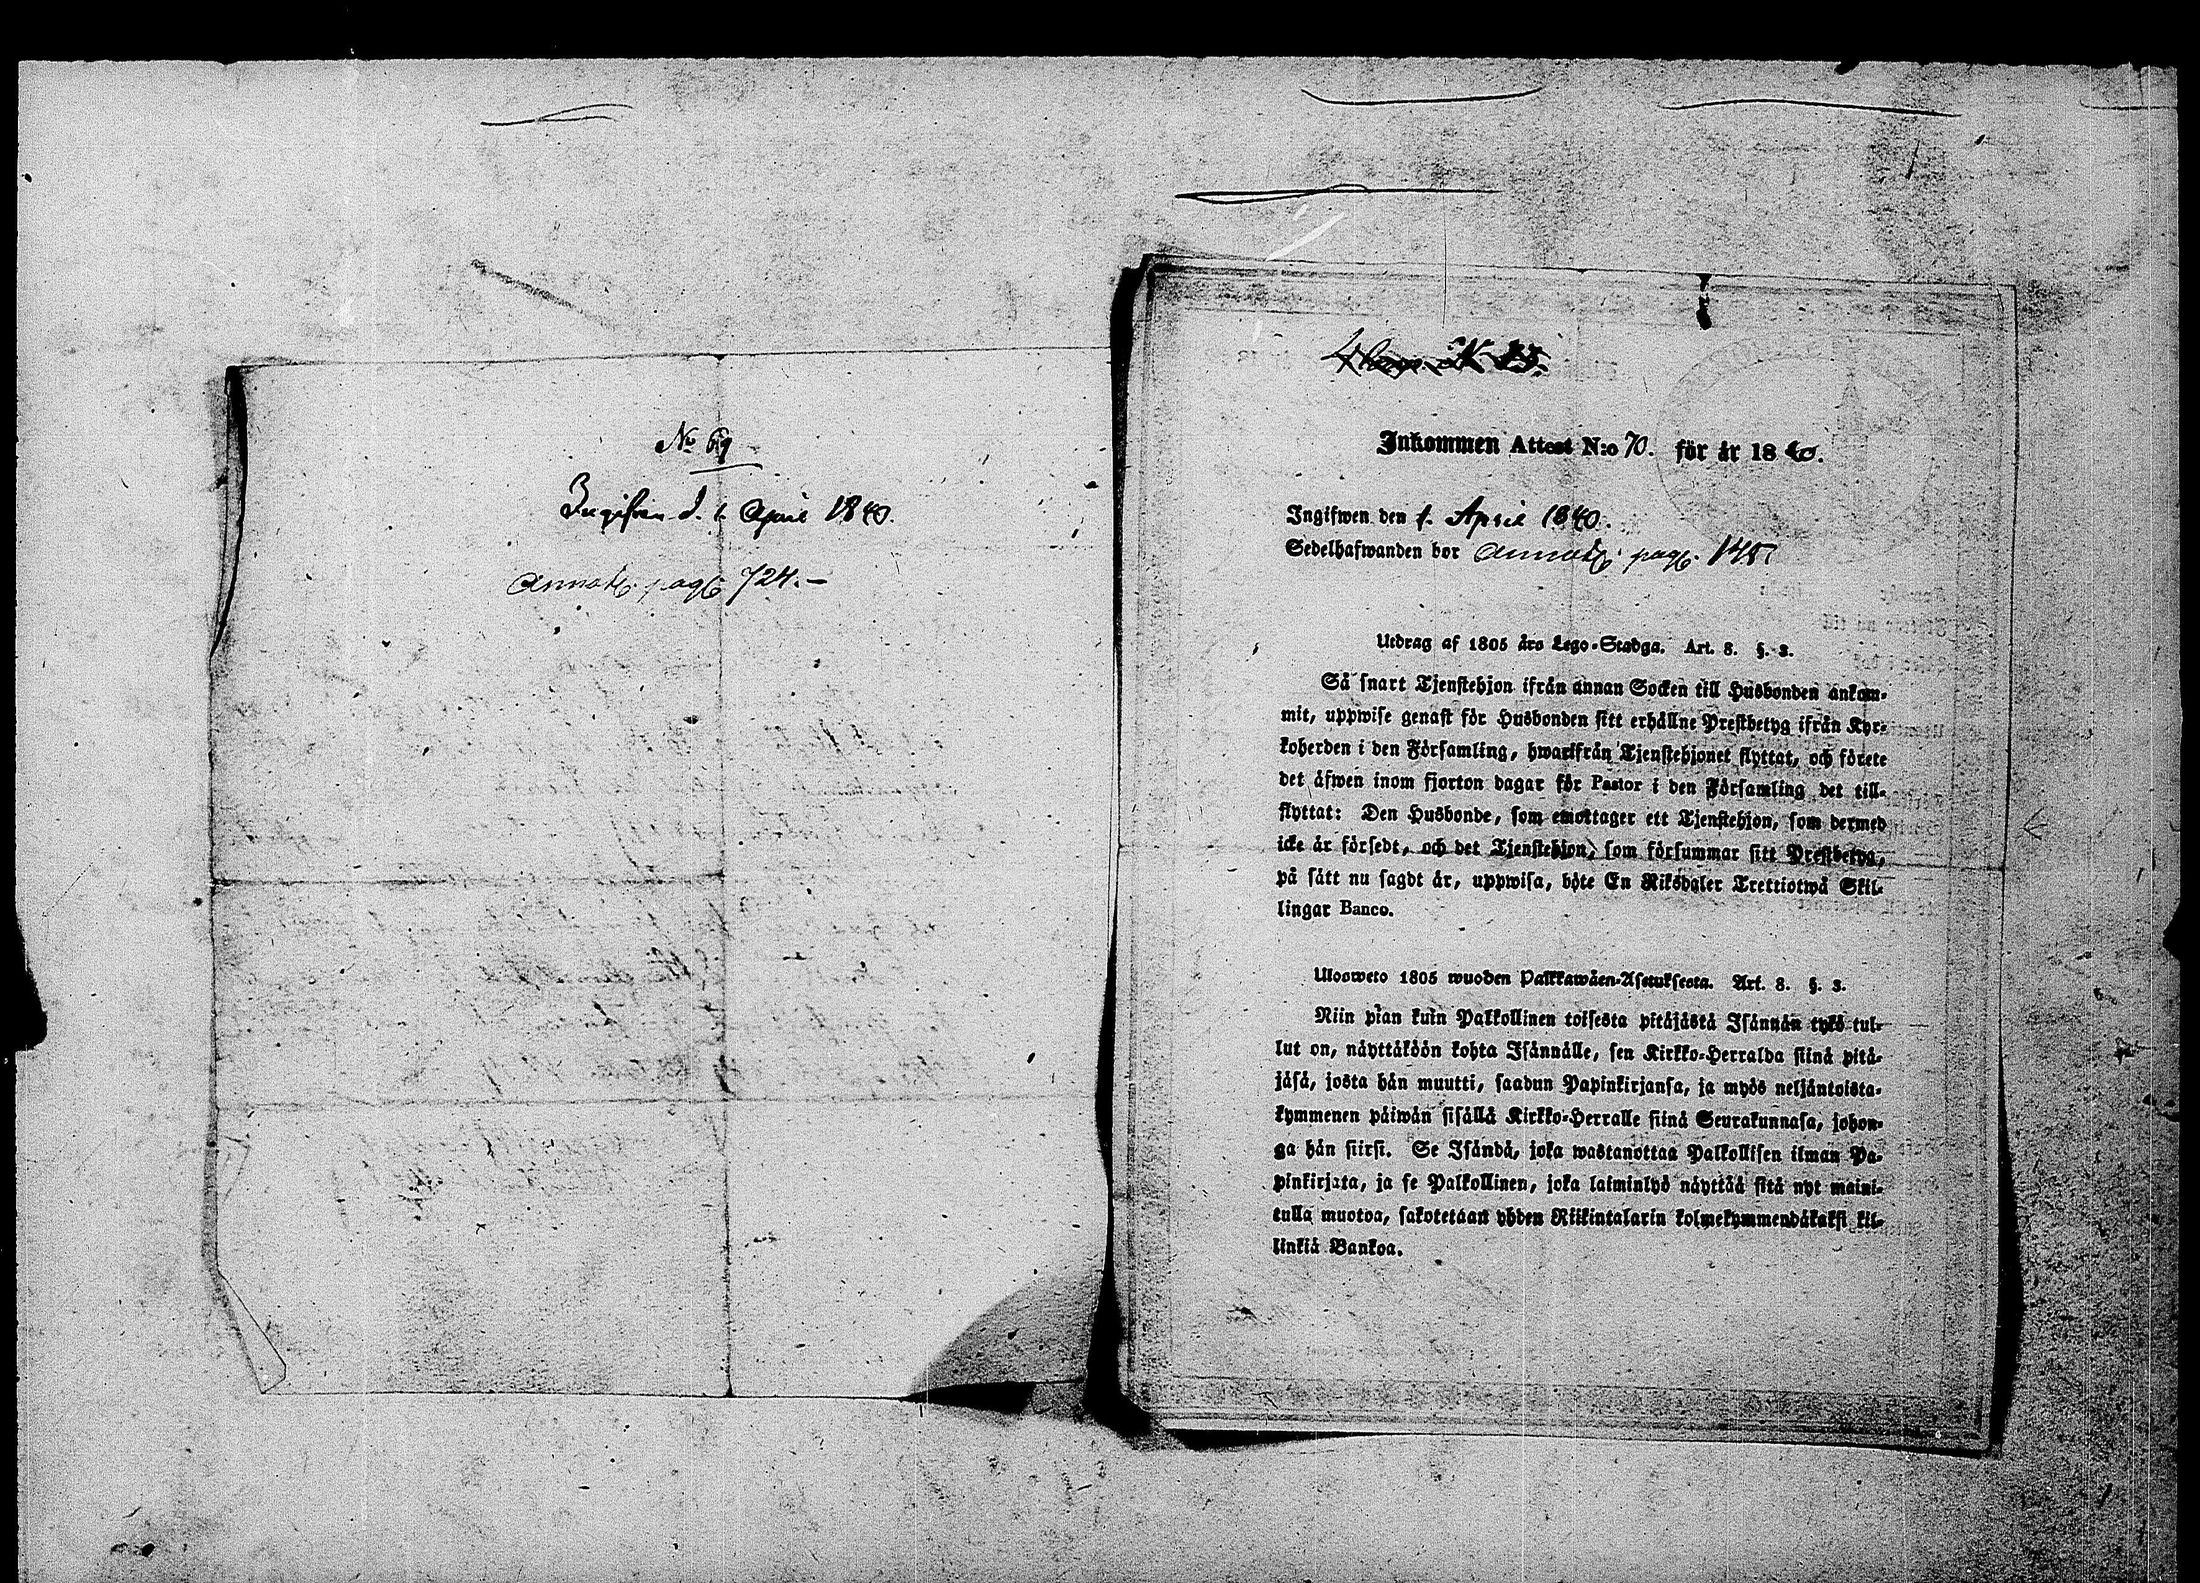 No 69
Ingifven d. 1 April 1840.
Annot. pag. 724.–
Inkommen Attest N:o 70. för år 1840.
Ingifwen den 1. April 1840.
Sedelhafwanden bor Annot. pag. 145
Utdrag af 1805 års Lego-Stadga. Art. 8. §. 3.
Så snart Tjenstehjon ifrån annan Socken till Husbonden ankom-
mit, uppwise genast för Husbonden sitt erhållne Prestbetyg ifrån Kyr-
koherden i den Församling, hwarifrån Tjenstehjonet flyttat, och förete
det äfwen inom fjorton dagar för Pastor i den Församling det till-
flyttat: Den Husbonde, som emottager ett Tjenstehjon, som dermed
icke är försedt, och det Tjenstehjon, som försummar sitt Prestbetyg,
på sätt nu sagdt är, uppwisa, böte En Riksdaler Trettiotwå Skil-
lingar Banco.
Ulosweto 1805 wuoden Palkkawäen-Asetuksesta. Art. 8. §. 3.
Niin pian kuin Palkollinen toisesta pitäjästä Isännän tykö tul-
lut on, näyttäköön kohta Isännälle, sen Kirkko-Herralda siinä pitä-
jäsä, josta hän muutti, saadun Papinkirjansa, ja myös neljäntoista-
kymmenen päiwän sisällä Kirkko-Herralle siinä Seurakunnasa, johon-
ga hän siirsi. Se Isändä, joka wastanottaa Palkollisen ilman Pa-
pinkirjata, ja se Palkollinen, joka laiminlyö näyttää sitä nyt maini-
tulla muotoa, sakotetaan yhden Riikintalarin kolmekymmendäkaksi kil-
linkiä Bankoa.